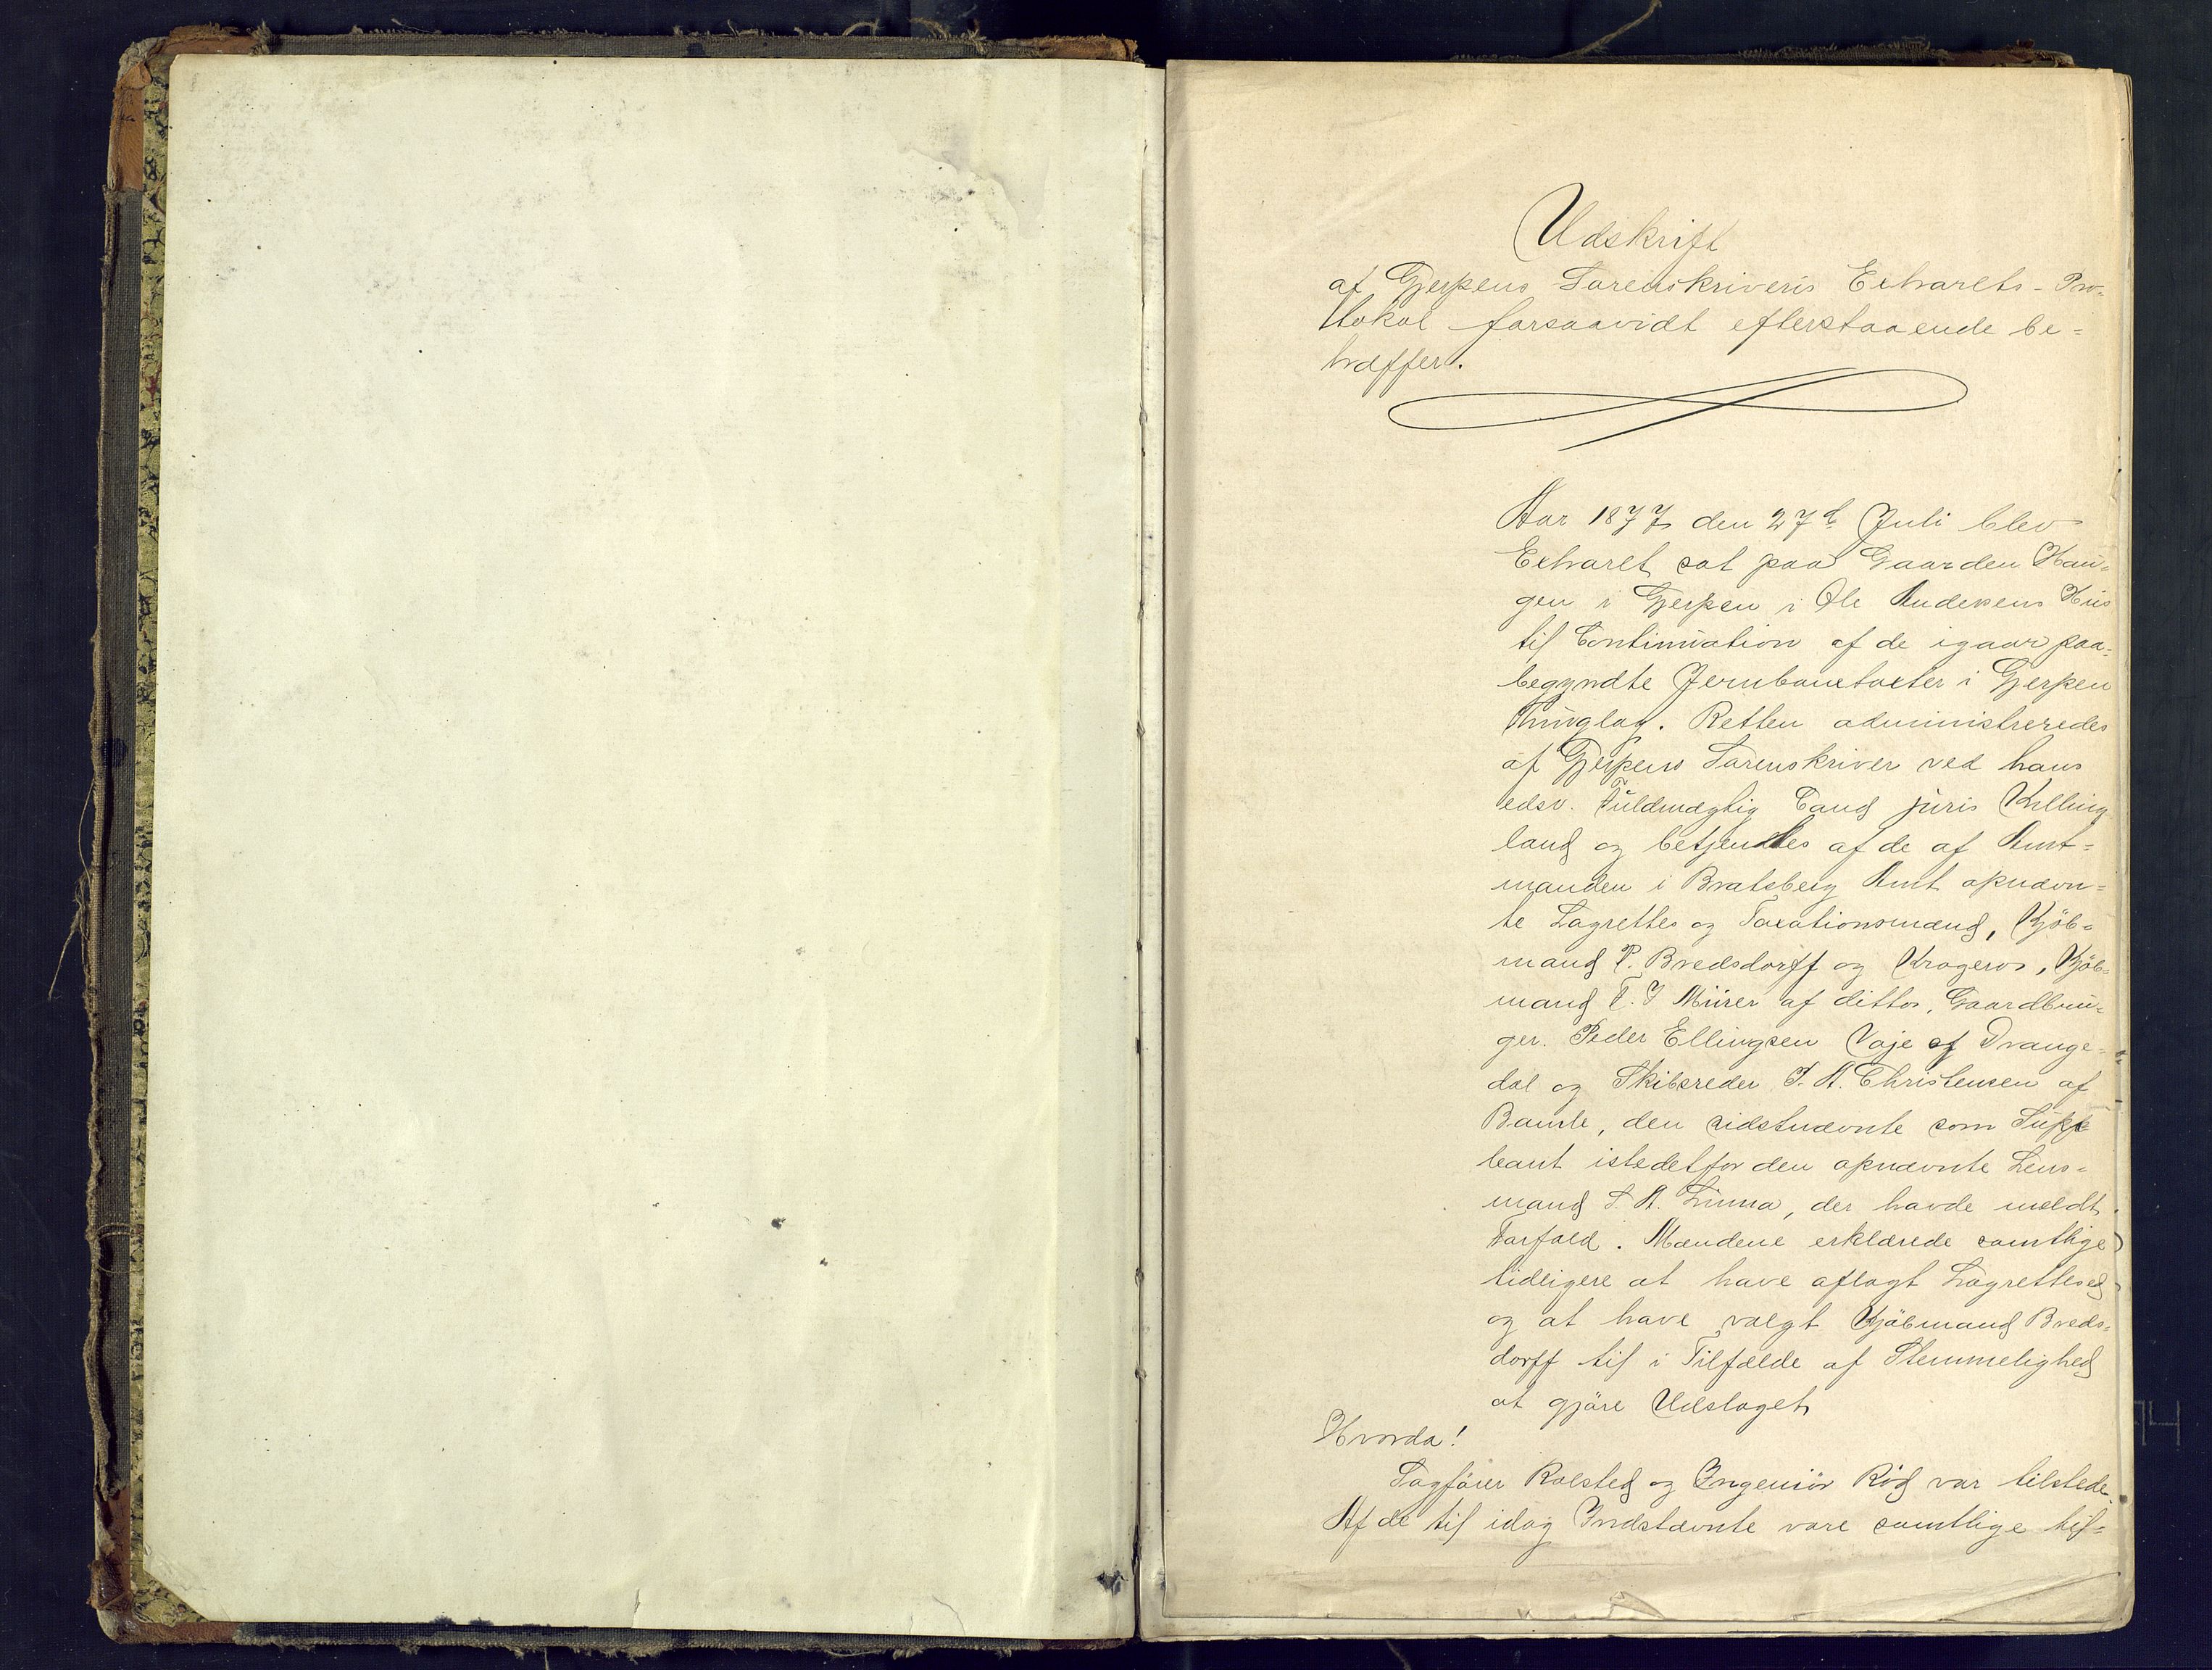 Udskrift
af Gjerpens Sorenskriveris Extrarets-Pro-
tokol forsaavidt efterstaaende be-
træffer.
Aar 1877 den 27de Juli blev
Extraret sat paa Gaarden Hau-
gen i Gjerpen i Ole Andersens Hus
til Continuation af de igaar paa-
begyndte Jernbanetaxter i Gjerpen
Thinglag. Retten administreredes
af Gjerpens Sorenskriver ved hans
edsv. Fuldmægtig Cand juris Killing
land og betjentes af de af Amt-
manden i Bratsberg Amt opnævn-
te Lagrettes og Taxationsmænd, Kjöb-
mand P. Bredsdorff og Kragerø, Kjöb-
mand T. J Mürer af ditto, Gaardbru-
ger. Peder Ellingsen Vaje af Drange-
dal og Skibsreder J. A. Christensen af
Bamle, den sidstnævnte som Supp
leant istedetfor den opnævnte Lens-
mand A. Linna, der havde meldt
Forfald. Mændene erklærede samtlige
tidligere at have aflagt Lagrettesed
og at have valgt Kjöbmand Breds-
dorff til i Tilfælde af Stemmelighed
at gjöre Udslaget
Hvorda!
Sagförer Rolsted og Ingeniör Röd var tilstede.
Af de til idag Indstævnte vare samtlige til-